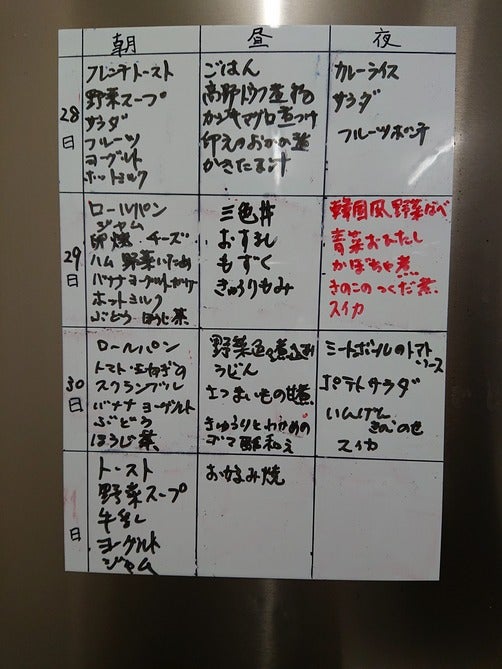 朝 昼 夜
28日
フレンチトースト
野菜スープ
サラダ
フルーツ
ヨーグルト
ホットミルク
ごはん
高野トウフ煮物
カジキマグロ煮つけ
卵え
かきたま汁
カレーライス
サラダ
フルーツポンチ
29日
ロールパン
ジャム
卵焼 チーズ
ハム 野菜いため
バナナヨーグルトがけ
ホットミルク
ぶどう ほうじ茶
三色丼
おすまし
もずく
きゅうりもみ
韓国風野菜なべ
青菜おひたし
かぼちゃ煮
きのこのつくだ煮
スイカ
30日
ロールパン
トマト・玉ねぎの
スクランブル
バナナヨーグルト
ぶどう
ほうじ茶
野菜色々煮込み
うどん
さつまいもの甘煮
きゅうりとわかめの
ゴマ酢和え
ミートボールのトマト
ソース
ポテトサラダ
いんげん
スイカ
日
トースト
野菜スープ
牛乳
ヨーグルト
ジャム
おこのみ焼